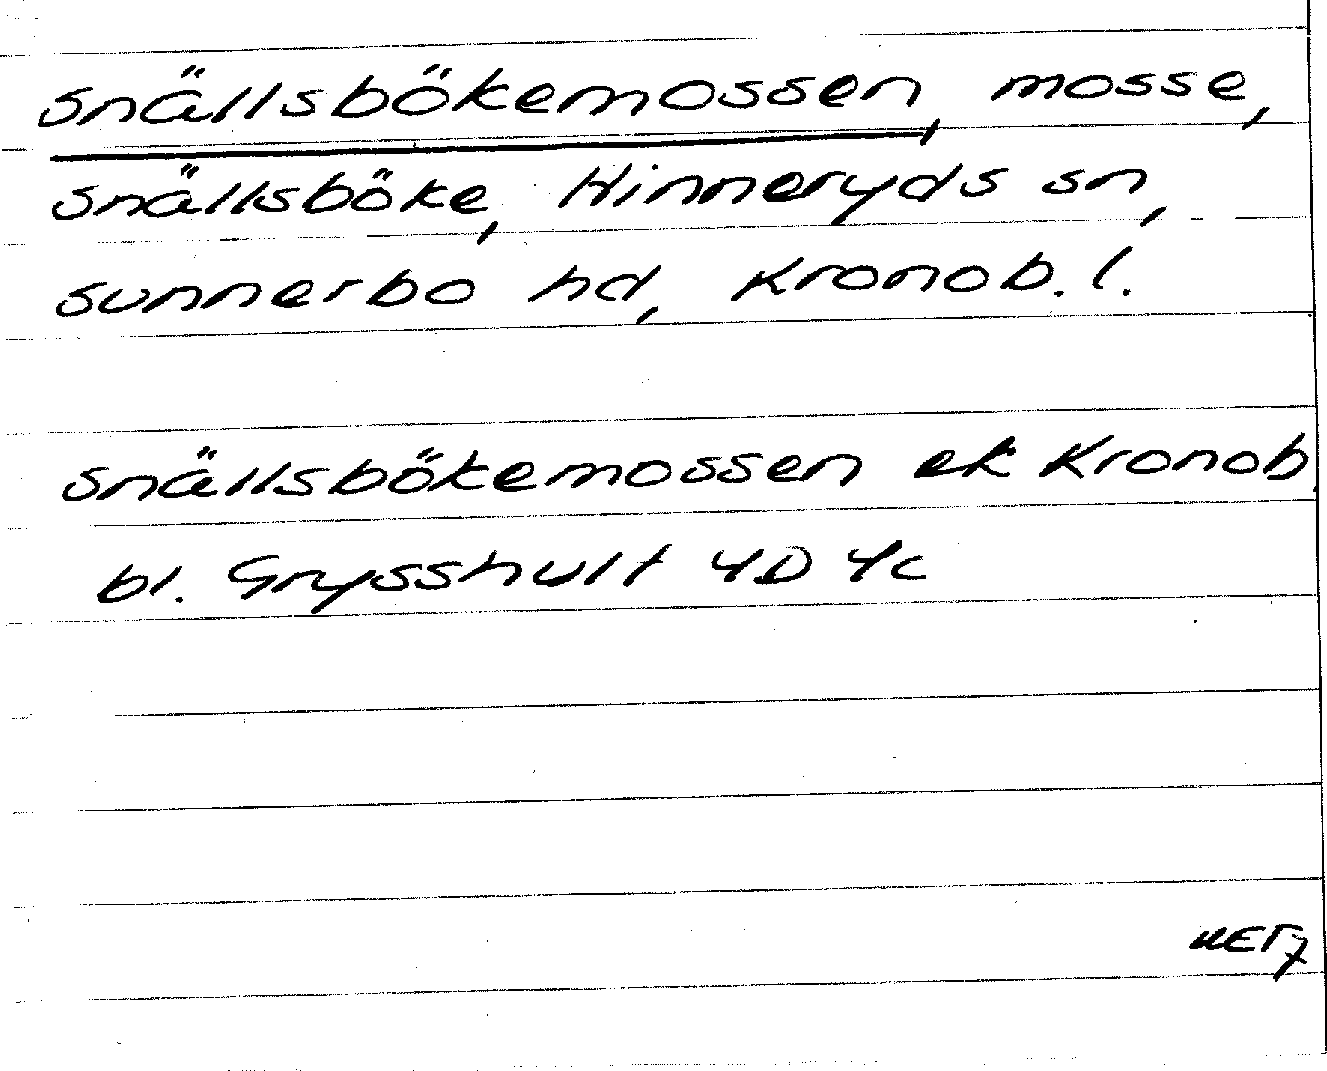 Snällsbökemossen, mosse,
Snällsböke, Hinneryds sn,
Sunnerbo hd, Kronob. l.
Snällsbökemossen ek Kronob.
bl. Grysshult 4D 4c